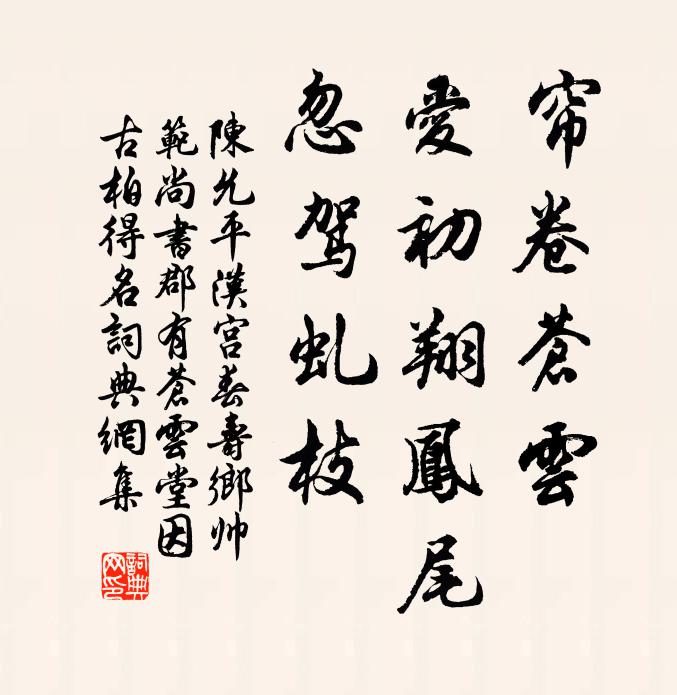 帘卷蒼雲
愛初翔鳳尾
忽駕虬枝
陳允平漢宮春壽鄉帅
範尚書郡有蒼雲堂因
古柏得名詞典網集
詞典
网印